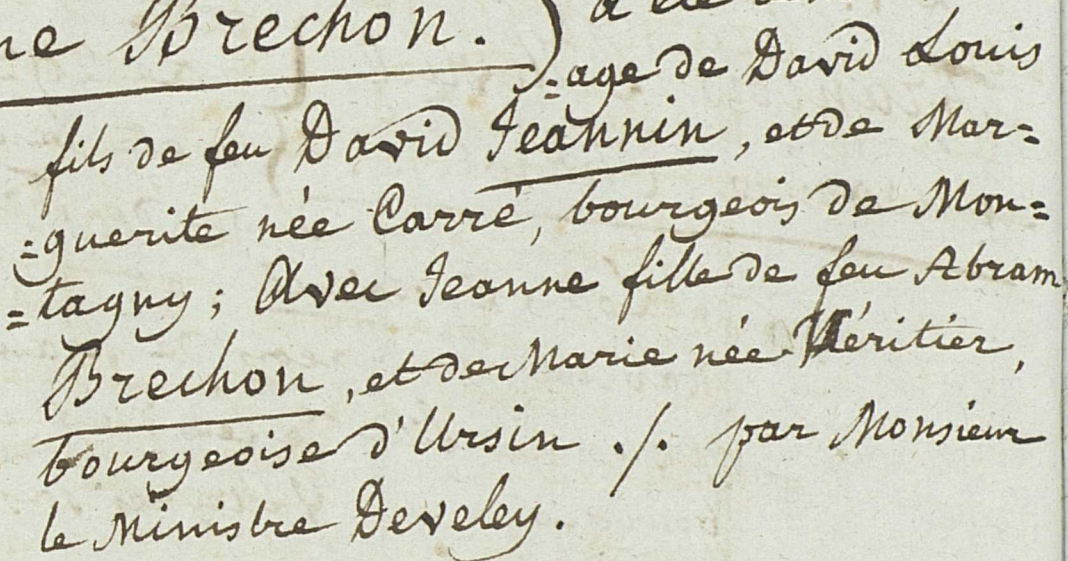 ne Brechon.
=age de David Louis
fils de feu David Jeannin, et de Mar=
=guerite née Carré, bourgeois de Mon=
=tagny; Avec Jeanne fille de feu Abram
Brechon, et de Marie née Héritier,
bourgeoise d'Ursin ./. par Monsieur
le Ministre Develey.